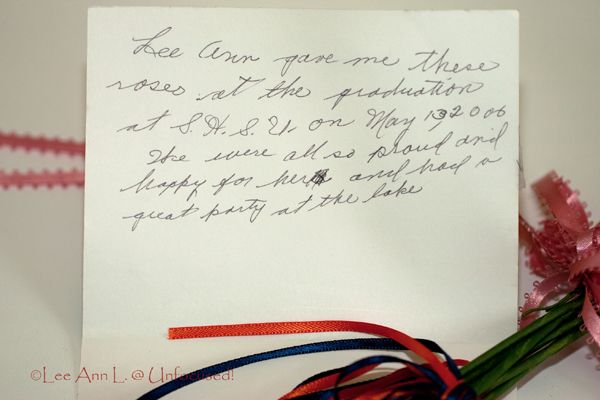 Lee Ann gave me these
roses at the graduation
at S.H.S.U. on May 13, 2006
We were all so proud and
happy for her and had a
great party at the lake
©Lee Ann L. @ Unfocused!